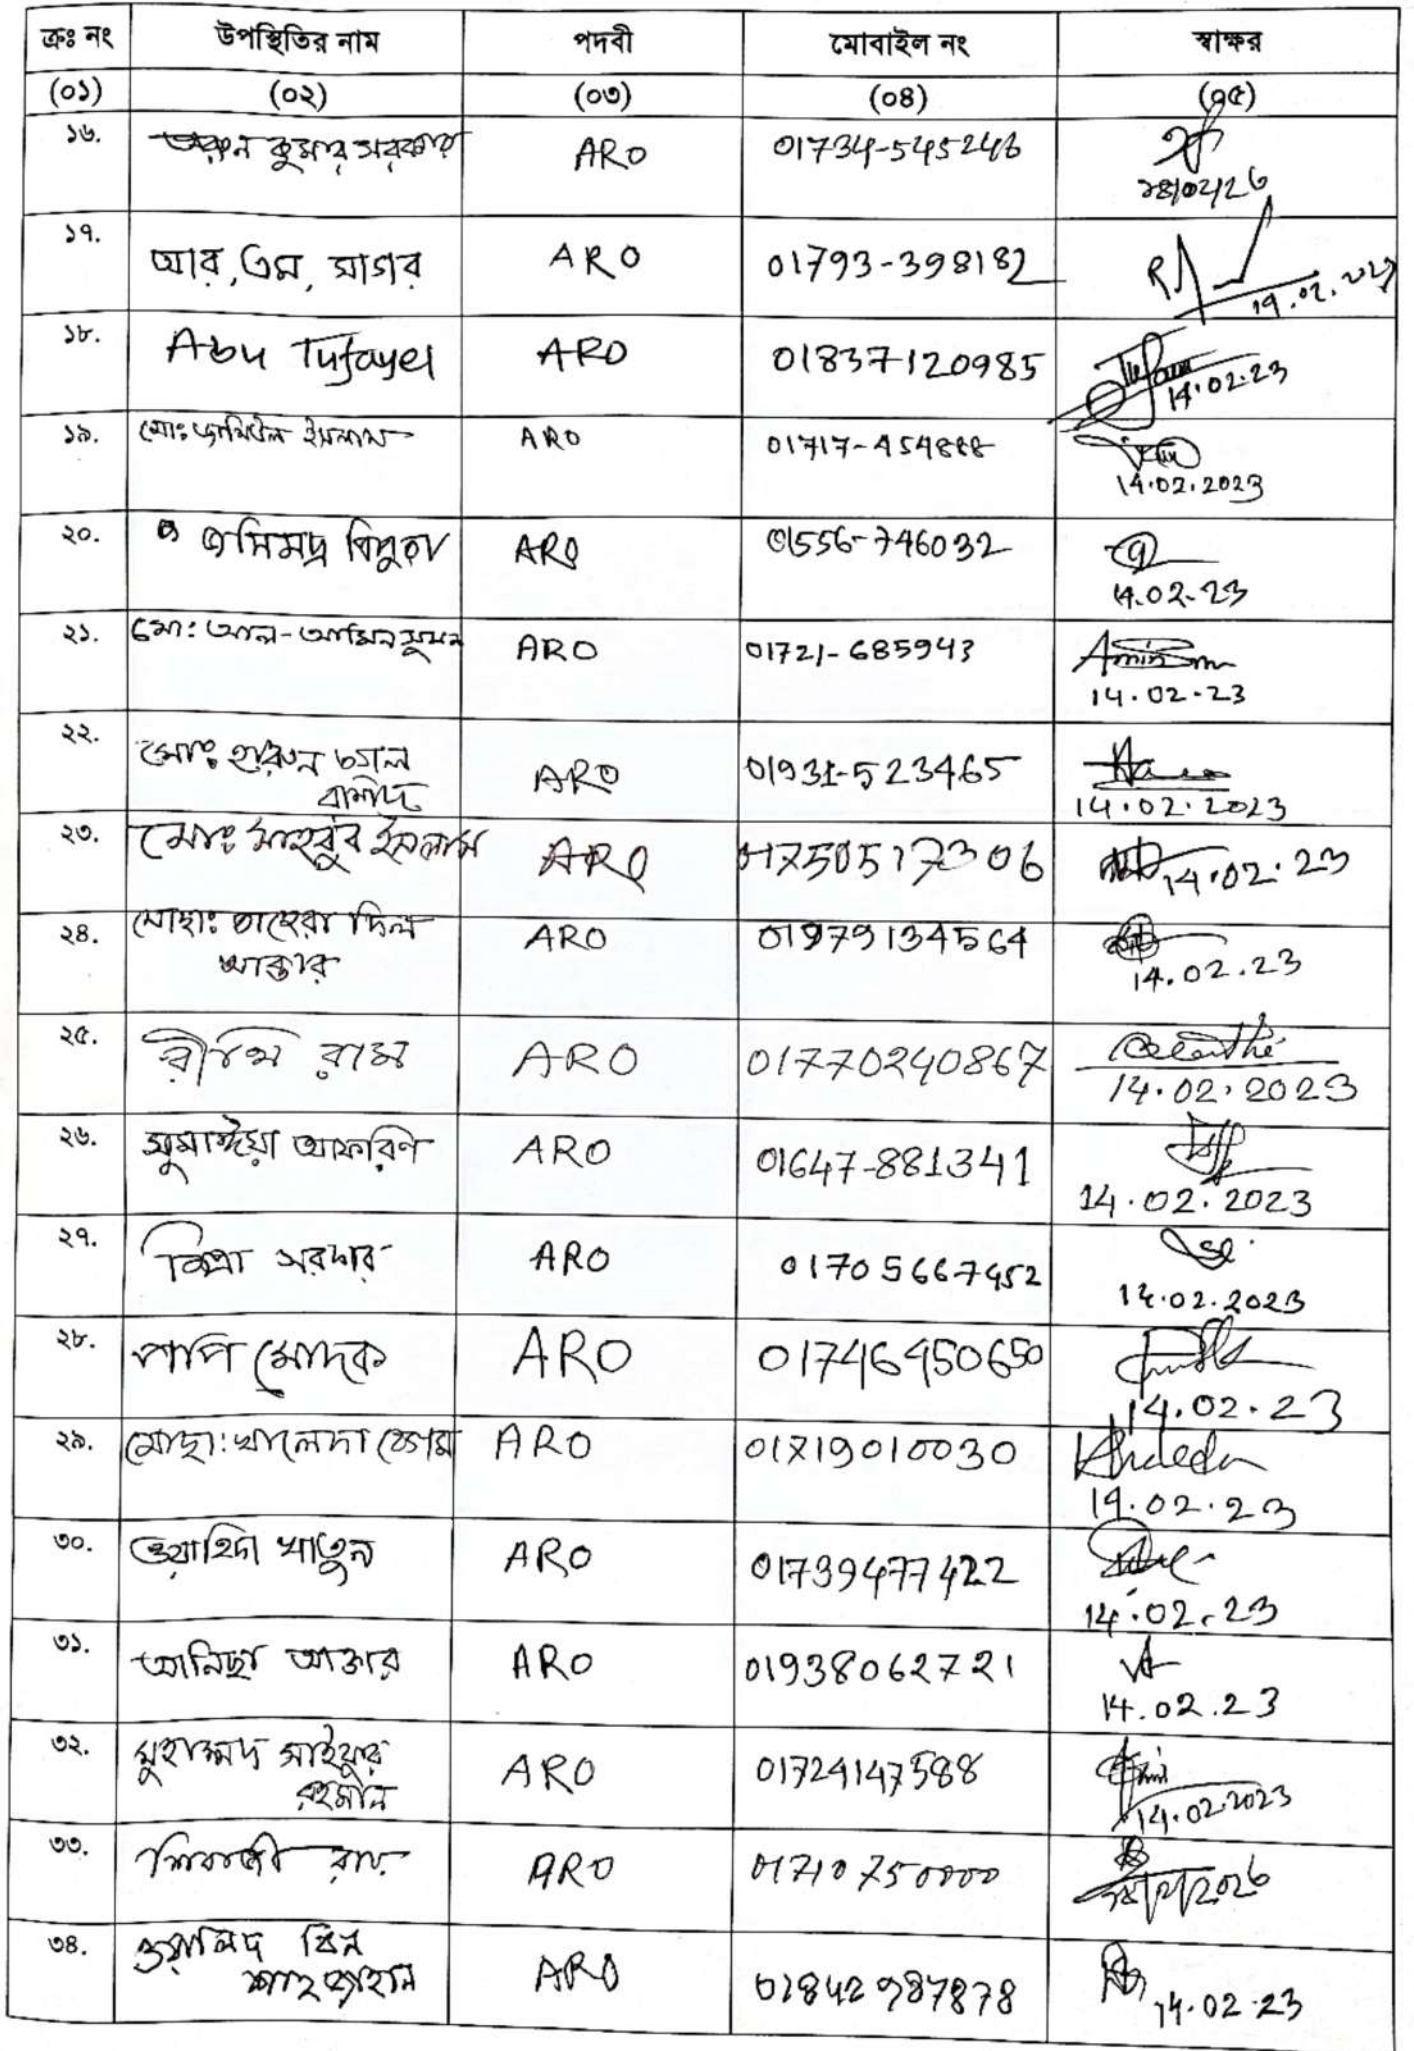 ক্রঃ নং উপস্থিতির নাম পদবী মোবাইল নং স্বাক্ষর
(০১) (০২) (০৩) (০৪) (০৫)
১৬. কুমার সরকার ARO 01734-545246
১৭. আর, এম, সাগর ARO 01793-398182
১৮. Abu Tufayel ARO 01837120985
14.02.23
১৯. মোঃ জামিউল ইসলাম ARO 01717-454888
14.02.2023
২০. ARO 01556-746032
14.02.23
২১. মো: আল-আমিন সুমন ARO 01721-685943
14.02.23
২২. মোঃ হারুন অাল ARO 01931-523465
রশিদ 14.02.2023
২৩. মোঃ মাহবুব ইসলাম ARO 01750517306 14.02.23
২৪. মোছাঃ তাহেরা দিল ARO 01979134564
আক্তার 14.02.23
২৫. ARO 01770240867
14.02.2023
২৬. সুমাঈয়া আফরিণ ARO 01647-881341
14.02.2023
২৭. সরদার ARO 01705667452
14.02.2023
২৮. পাপি মোদক ARO 01746450650
14.02.23
২৯. মোছা: খালেদা বেগম ARO 01719010030 Khaleda
14.02.23
৩০. ওয়াহিদা খাতুন ARO 01739477422
14.02.23
৩১. আনিছা আক্তার ARO 01938062721
14.02.23
৩২. মুহাম্মদ সাইফুর ARO 01724147588
রহমান 14.02.2023
৩৩. শিবাজী রায় ARO 01710750000
৩৪. ওয়ালিদ বিন ARO 01842987878
শাহজাহান 14.02.23